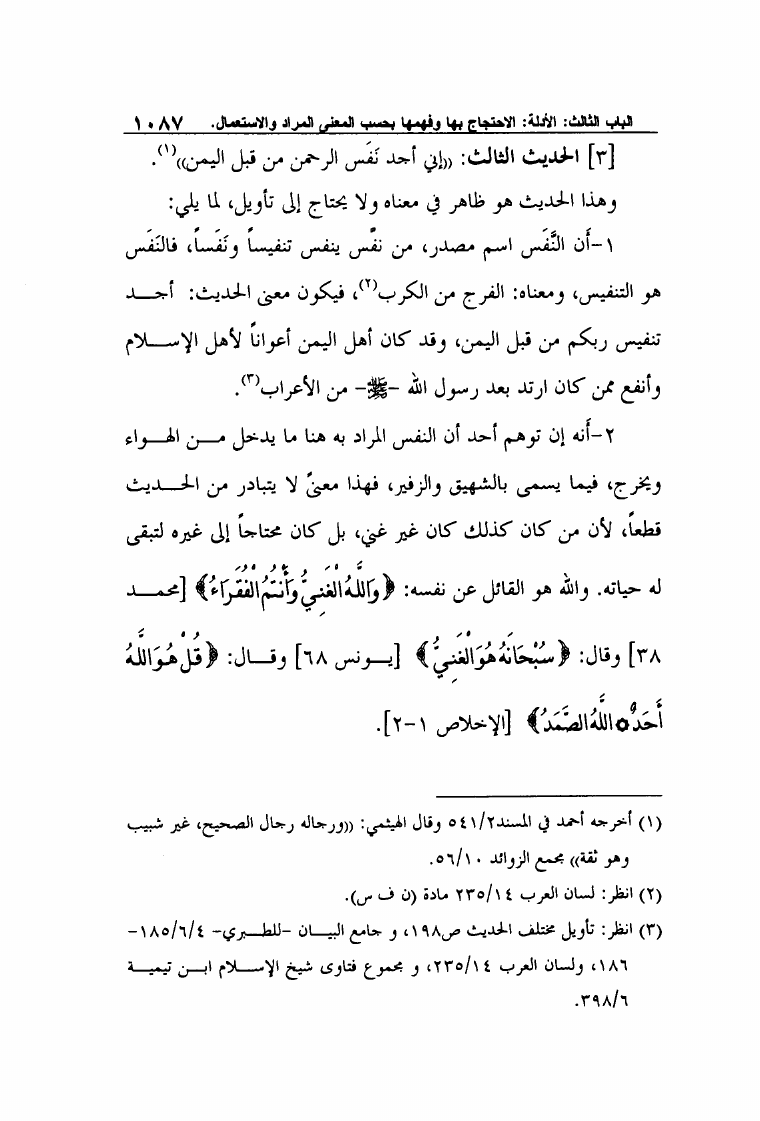 الباب الثالث: الأدلة: الاحتجاج بها وفهمها بحسب المعنى المراد والاستعمال. ١٠٨٧
[٣] الحديث الثالث: «إني أجد نَفَس الرحمن من قبل اليمن»(١).
وهذا الحديث هو ظاهر في معناه ولا يحتاج إلى تأويل، لما يلي:
١-أن النَّفَس اسم مصدر، من نفَّس ينفس تنفيساً ونَفَساً، فالنَفَس
هو التنفيس، ومعناه: الفرج من الكرب(٢)، فيكون معنى الحديث: أجـــد
تنفيس ربكم من قبل اليمن، وقد كان أهل اليمن أعواناً لأهل الإســـلام
وأنفع ممن كان ارتد بعد رسول الله -ﷺ- من الأعراب(٣).
٢-أنه إن توهم أحد أن النفس المراد به هنا ما يدخل مـــن الهـــواء
ويخرج، فيما يسمى بالشهيق والزفير، فهذا معنىً لا يتبادر من الحـــديث
قطعاً، لأن من كان كذلك كان غير غني، بل كان محتاجاً إلى غيره لتبقى
له حياته. والله هو القائل عن نفسه: ﴿وَاللَّهُ الْغَنِيُّ وَأَنْتُمُ الْفُقَرَاءُ﴾ [محمـــد
٣٨] وقال: ﴿سُبْحَانَهُ هُوَ الْغَنِيُّ﴾ [يـــونس ٦٨] وقـــال: ﴿قُلْ هُوَ اللَّهُ
أَحَدٌ ۝ اللَّهُ الصَّمَدُ﴾ [الإخلاص ١-٢].
(١) أخرجه أحمد في المسند٥٤١/٢ وقال الهيثمي: «ورجاله رجال الصحيح، غير شبيب
وهو ثقة» مجمع الزوائد ٥٦/١٠.
(٢) انظر: لسان العرب ٢٣٥/١٤ مادة (ن ف س).
(٣) انظر: تأويل مختلف الحديث ص١٩٨، و جامع البيـــان -للطـــبري- ١٨٥/٦/٤-
١٨٦، ولسان العرب ٢٣٥/١٤، و مجموع فتاوى شيخ الإســـلام ابـــن تيميـــة
٣٩٨/٦.